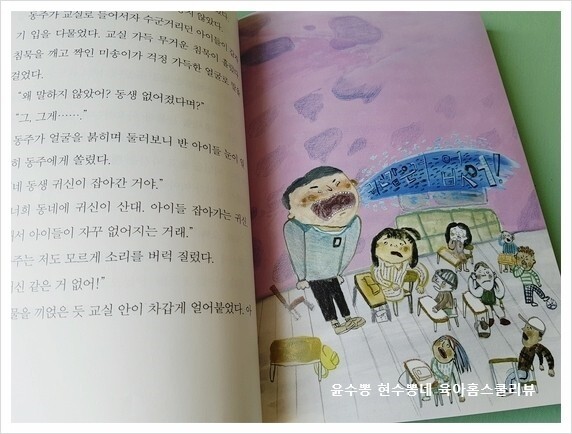 동주가 교실로 들어서자 수군거리던 아이들이
기 입을 다물었다. 교실 가득 무거운 침묵이
침묵을 깨고 짝인 미송이가 걱정 가득한 얼굴로
걸었다.
"왜 말하지 않았어? 동생 없어졌다며?"
"그, 그게……."
동주가 얼굴을 붉히며 둘러보니 반 아이들 눈이
히 동주에게 쏠렸다.
네 동생 귀신이 잡아간 거야."
너희 동네에 귀신이 산대. 아이들 잡아가는 귀신.
서 아이들이 자꾸 없어지는 거래."
주는 저도 모르게 소리를 버럭 질렀다.
신 같은 거 없어!"
물을 끼얹은 듯 교실 안이 차갑게 얼어붙었다.
D
윤수뽕 현수뽕네 육아홈스쿨리뷰